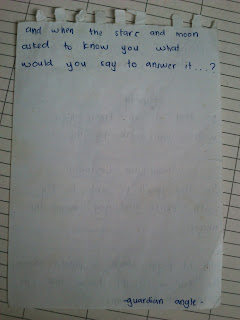 and when the stars and moon
asked to know you what
would you say to answer it...?
-guardian angle-